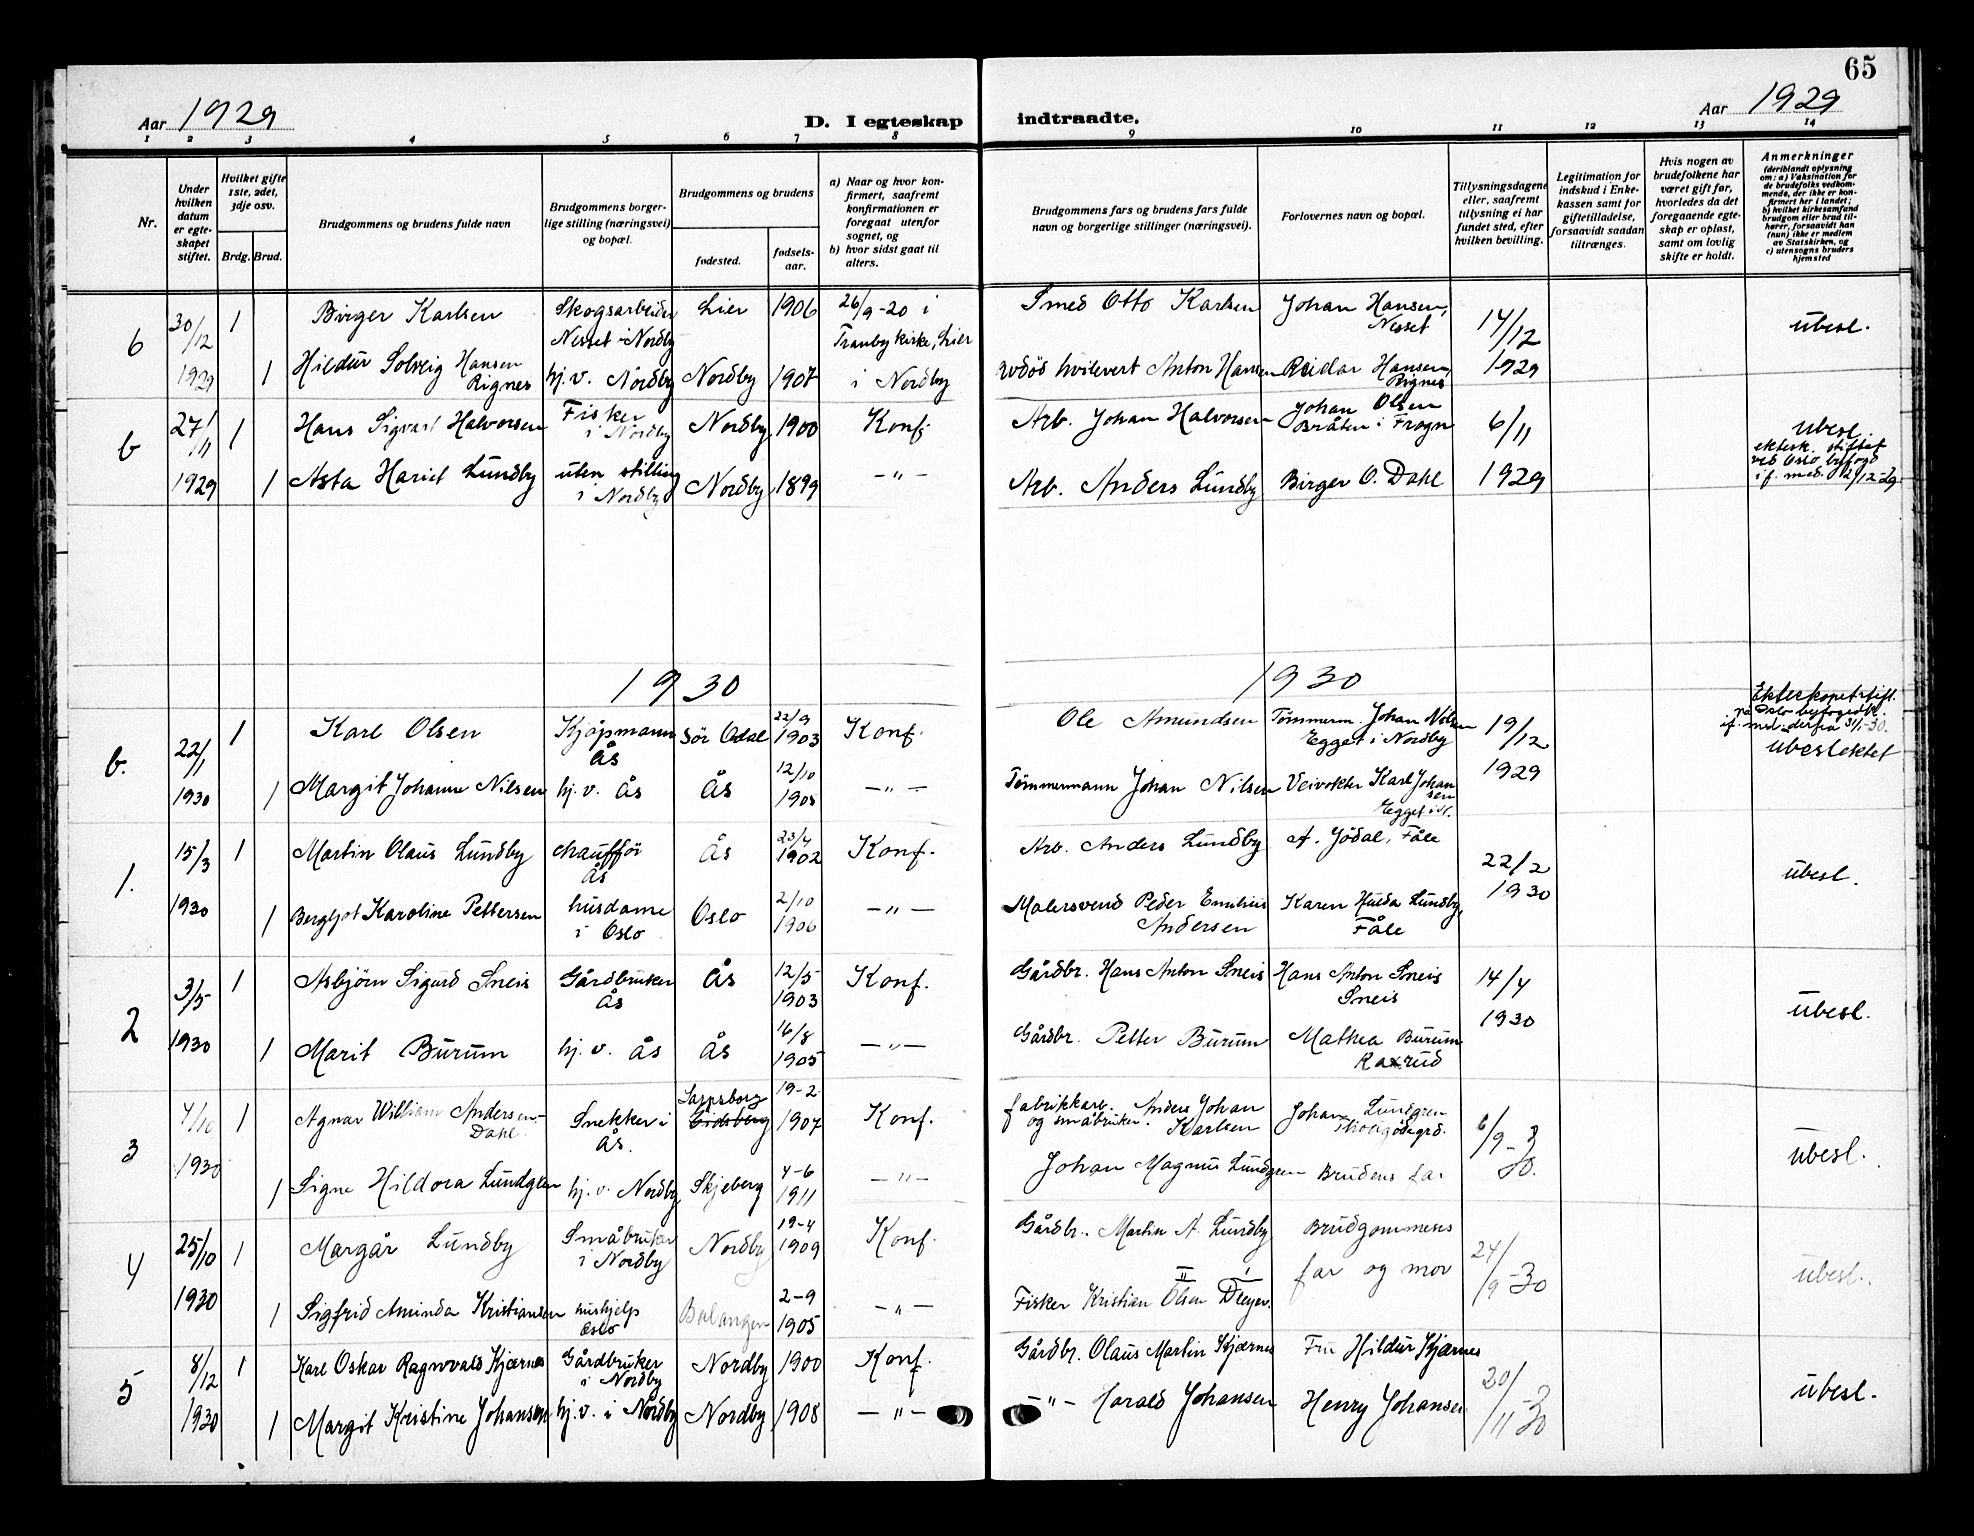 65
Aar 1929
D. I egteskap indtraadte.
Aar 1929
1 2 3 4 5 6 7 8 9 10 11 12 13 14
Nr.
Under hvilken datum er egteskapet stiftet.
Hvilket gifte 1ste, 2det, 3dje osv.
Brdg. Brud.
Brudgommens og brudens fulde navn
Brudgommens borgerlige stilling (næringsvei) og bopæl.
Brudgommens og brudens
fødested.
fødselsaar.
a) Naar og hvor konfirmert, saafremt konfirmationen er foregaat utenfor sognet, og
b) hvor sidst gaat til alters.
Brudgommens fars og brudens fars fulde navn og borgerlige stillinger (næringsvei).
Forlovernes navn og bopæl.
Tillysningsdagene eller, saafremt tillysning ei har fundet sted, efter hvilken bevilling.
Legitimation for indskud i Enkekassen samt for giftetilladelse, forsaavidt saadan tiltrænges.
Hvis nogen av brudefolkene har været gift før, hvorledes da det foregaaende egteskap er opløst, samt om lovlig skifte er holdt.
Anmerkninger (deriblandt oplysning om: a) Vaksination for de brudefolks vedkommende, der ikke er konfirmert her i landet; b) hvilket kirkesamfund brudgom eller brud tilhører, forsaavidt han (hun) ikke er medlem av Statskirken, og c) utensogns bruders hjemsted
6 30/12 1929 1 Birger Karlsen Skogsarbeider Nesset i Nordby Lier 1906 26/9-20 i Tranby kirke, Lier Smed Otto Karlsen Johan Hansen, Nesset 14/12 1929 ubesl.
1 Hildur Solveig Hansen Rignes hj. v. Nordby Nordby 1907 i Nordby Anton Hansen Reidar Hansen, Rignes
b 27/11 1929 1 Hans Sigvart Halvorsen Fisker i Nordby Nordby 1900 Konf. Arb. Johan Halvorsen Johan Olsen Bråten i Frogn 6/11 1929 ubesl. ektesk. stiftet ved Oslo byfogd if. med. 12/12-29
1 Asta Hariet Lundby uten stilling i Nordby Nordby 1899 -"- Arb. Anders Lundby Birger O. Dahl
1930 1930
b. 22/1 1930 1 Karl Olsen Kjøpmann Ås Sør Odal 22/9 1903 Konf. Ole Amundsen Tømmerm. Johan Nilsen Egget i Nordby 19/12 1929 Ekteskapet stift. på Oslo byfogedkt. if. med. derfra 31/1-30. ubeslektet
1 Margit Johanne Nilsen hj. v. Ås Ås 12/10 1905 -"- Tømmermann Johan Nilsen Veivokter Karl Johansen Egget i N.
1. 15/3 1930 1 Martin Olaus Lundby chauffør Ås Ås 23/4 1902 Konf. Arb. Anders Lundby A. Jødal, Fåle 22/2 1930 ubesl.
1 Bergljot Karoline Pettersen husdame i Oslo Oslo 2/10 1906 -"- Malersvend Peder Emilius Andersen Karen Hulda Lundby, Fåle
2 3/5 1930 1 Asbjørn Sigurd Sneis Gårdbruker Ås Ås 12/5 1903 Konf. Gårdbr. Hans Anton Sneis Hans Anton Sneis Sneis 14/4 1930 ubesl.
1 Marit Burum hj. v. Ås Ås 16/8 1905 -"- Gårdbr. Petter Burum Mathea Burum Raxrud
3 4/10 1930 1 Agnar William Andersen-Dahl. Snekker i Ås. Sarpsborg Eidsberg 19-2 1907 Konf. fabrikkarb. og småbruker. Anders Johan Karlsen Johan Lundgren 6/9-30. ubesl.
1 Signe Hildora Lundgren hj. v. Nordby Skjeberg 4-6 1911 -"- Johan Magnus Lundgren Brudens far
4 25/10 1930 1 Margår Lundby Småbruker i Nordby Nordby 19-4 1909 Konf. Gårdbr. Martin A. Lundby Brudgommens far og mor 24/9-30 ubesl.
1 Sigfrid Aminda Kristiansen hushjelp Oslo Balangen 2-9 1905 -"- Fisker Kristian Olsen Dreyer.
5 8/12 1930 1 Karl Oskar Ragnvald Kjærnes Gårdbruker i Nordby Nordby 1900 Konf. Gårdbr. Olaus Martin Kjærnes Fru Hildur Kjærnes 20/11-30 ubesl.
1 Margit Kristine Johansen hj. v. i Nordby Nordby 1908 -"- -"- Harald Johansen Henry Johansen